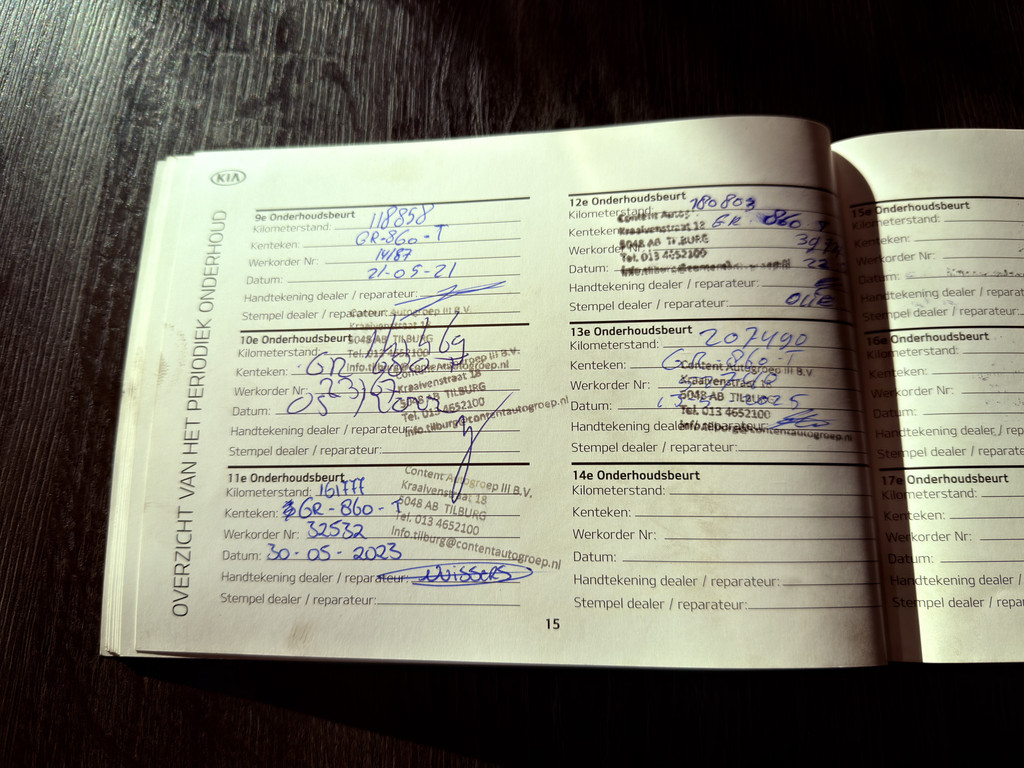 KIA
OVERZICHT VAN HET PERIODIEK ONDERHOUD
9e Onderhoudsbeurt
Kilometerstand: 118858
Kenteken: GR-860-T
Werkorder Nr: 14187
Datum: 21-05-21
Handtekening dealer / reparateur:
Stempel dealer / reparateur:
Content Autogroep III B.V.
Kraaivenstraat 18
5048 AB TILBURG
Tel. 013 4652100
Info.tilburg@contentautogroep.nl
10e Onderhoudsbeurt
Kilometerstand:
Kenteken: GR-860-T
Werkorder Nr: 23167
Datum:
Handtekening dealer / reparateur:
Stempel dealer / reparateur:
Content Autogroep III B.V.
Kraaivenstraat 18
5048 AB TILBURG
Tel. 013 4652100
Info.tilburg@contentautogroep.nl
11e Onderhoudsbeurt
Kilometerstand: 161777
Kenteken: GR-860-T
Werkorder Nr: 32532
Datum: 30-05-2023
Handtekening dealer / reparateur:
Stempel dealer / reparateur:
Content Autogroep III B.V.
Kraaivenstraat 18
5048 AB TILBURG
Tel. 013 4652100
Info.tilburg@contentautogroep.nl
15
12e Onderhoudsbeurt
Kilometerstand: 180803
Kenteken: GR-860-T
Werkorder Nr:
Datum:
Handtekening dealer / reparateur:
Stempel dealer / reparateur: OLIE
Kraaivenstraat 18
5048 AB TILBURG
Tel. 013 4652100
13e Onderhoudsbeurt
Kilometerstand: 207490
Kenteken: GR-860-T
Werkorder Nr:
Datum: 2025
Handtekening dealer / reparateur:
Stempel dealer / reparateur:
Content Autogroep III B.V.
Kraaivenstraat 18
5048 AB TILBURG
Tel. 013 4652100
Info.tilburg@contentautogroep.nl
14e Onderhoudsbeurt
Kilometerstand:
Kenteken:
Werkorder Nr:
Datum:
Handtekening dealer / reparateur:
Stempel dealer / reparateur:
15e Onderhoudsbeurt
Kilometerstand:
Kenteken:
Werkorder Nr:
Datum:
Handtekening dealer / reparat
Stempel dealer / reparat
16e Onderhoudsbeurt
Kilometerstand:
Kenteken:
Werkorder Nr:
Datum:
Handtekening dealer / rep
Stempel dealer / reparat
17e Onderhoudsbeurt
Kilometerstand:
Kenteken:
Werkorder Nr:
Datum:
Handtekening dealer / r
Stempel dealer / repar